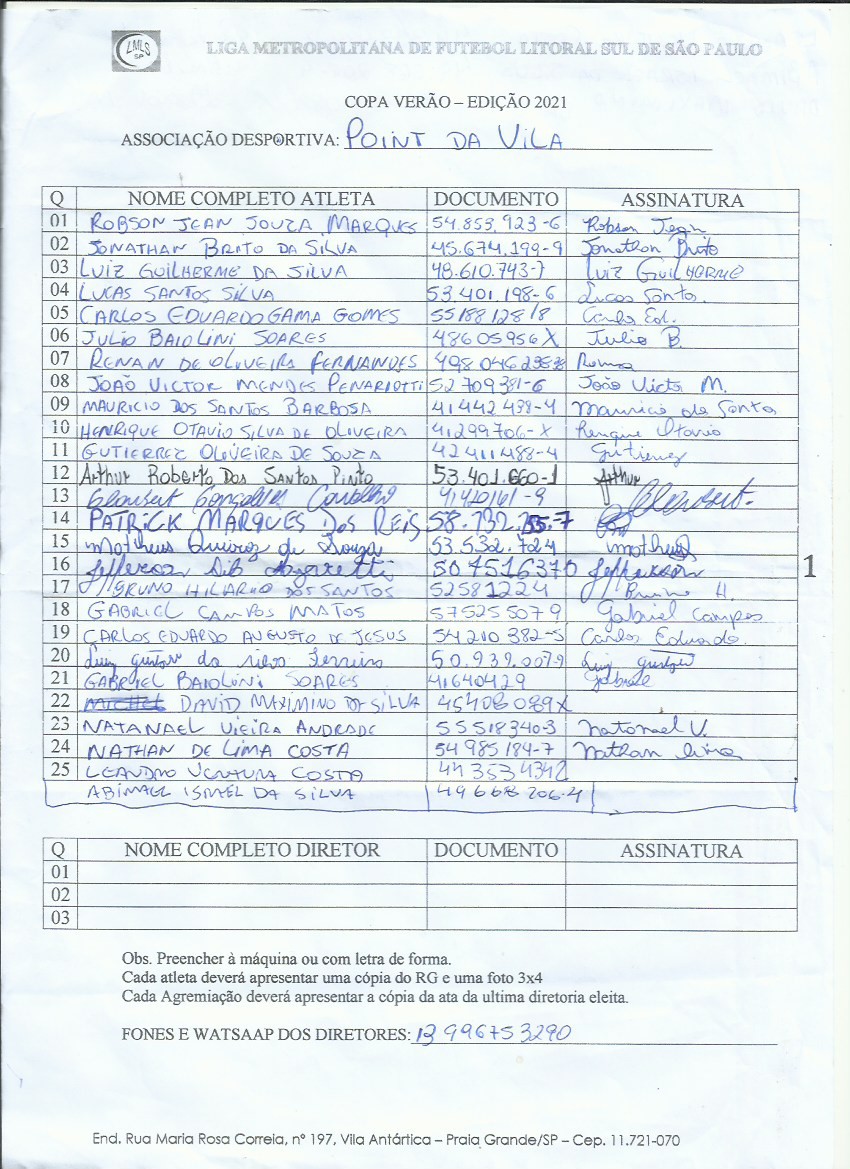 LMLS
SP
LIGA METROPOLITANA DE FUTEBOL LITORAL SUL DE SÃO PAULO
COPA VERÃO – EDIÇÃO 2021
ASSOCIAÇÃO DESPORTIVA: POINT DA VILA
Q NOME COMPLETO ATLETA DOCUMENTO ASSINATURA
01 ROBSON JEAN SOUZA MARQUES 54.855.923-6 Robson Jean
02 JONATHAN BRITO DA SILVA 45.674.199-9 Jonathan Brito
03 LUIZ GUILHERME DA SILVA 48.610.743-7 LUIZ GUILHERME
04 LUCAS SANTOS SILVA 53.401.198-6 Lucas Santos
05 CARLOS EDUARDO GAMA GOMES 55188128/8 Carlos Ed.
06 JULIO BAIOLINI SOARES 48605956X Julio B.
07 RENAN DE OLIVEIRA FERNANDES Renan
08 JOÃO VICTOR MENDES PENARIOTTI 52709381-6 João Victor M.
09 MAURICIO DOS SANTOS BARBOSA 41442438-4 Mauricio dos Santos
10 HENRIQUE OTAVIO SILVA DE OLIVEIRA 41299706-X Henrique Otavio
11 GUTIERREZ OLIVEIRA DE SOUZA 42411488-4 Gutierrez
12 Arthur Roberto Dos Santos Pinto 53.401.660-1 Arthur
13 Gonçalves Carvalho 41420161-9
14 PATRICK MARQUES DOS REIS
15 Matheus Queiroz de Souza 53.532.724 Matheus
16 Jefferson 504516370 Jefferson
17 BRUNO HILARIO DOS SANTOS 52581224 Bruno H.
18 GABRIEL CAMPOS MATOS 575255079 Gabriel Campos
19 CARLOS EDUARDO AUGUSTO DE JESUS 54210382-5 Carlos Eduardo
20 Luiz gustavo da silva Ferreira 50.939.0079 Luiz gustavo
21 GABRIEL BAIOLINI SOARES 41640429 Gabriel
22 DAVID MAXIMINO DA SILVA 45408089X
23 NATANAEL VIEIRA ANDRADE 55518340-3 Natanael V.
24 NATHAN DE LIMA COSTA 54985184-7 Nathan Lima
25 LEANDRO VENTURA COSTA 443534342
ABIMAEL ISMAEL DA SILVA 49668206-4
1
Q NOME COMPLETO DIRETOR DOCUMENTO ASSINATURA
01
02
03
Obs. Preencher à máquina ou com letra de forma.
Cada atleta deverá apresentar uma cópia do RG e uma foto 3x4
Cada Agremiação deverá apresentar a cópia da ata da ultima diretoria eleita.
FONES E WATSAAP DOS DIRETORES: 13 996753290
End. Rua Maria Rosa Correia, nº 197, Vila Antártica – Praia Grande/SP – Cep. 11.721-070